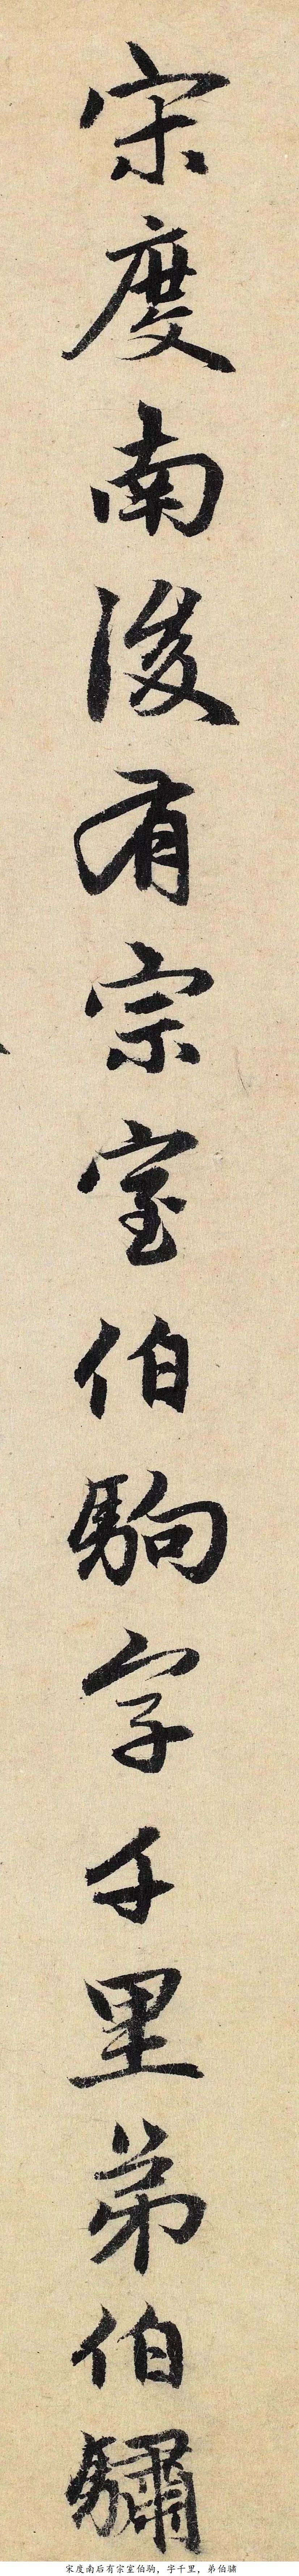 宋度南後有宗室伯駒字千里弟伯驌
宋度南后有宗室伯驹，字千里，弟伯骕